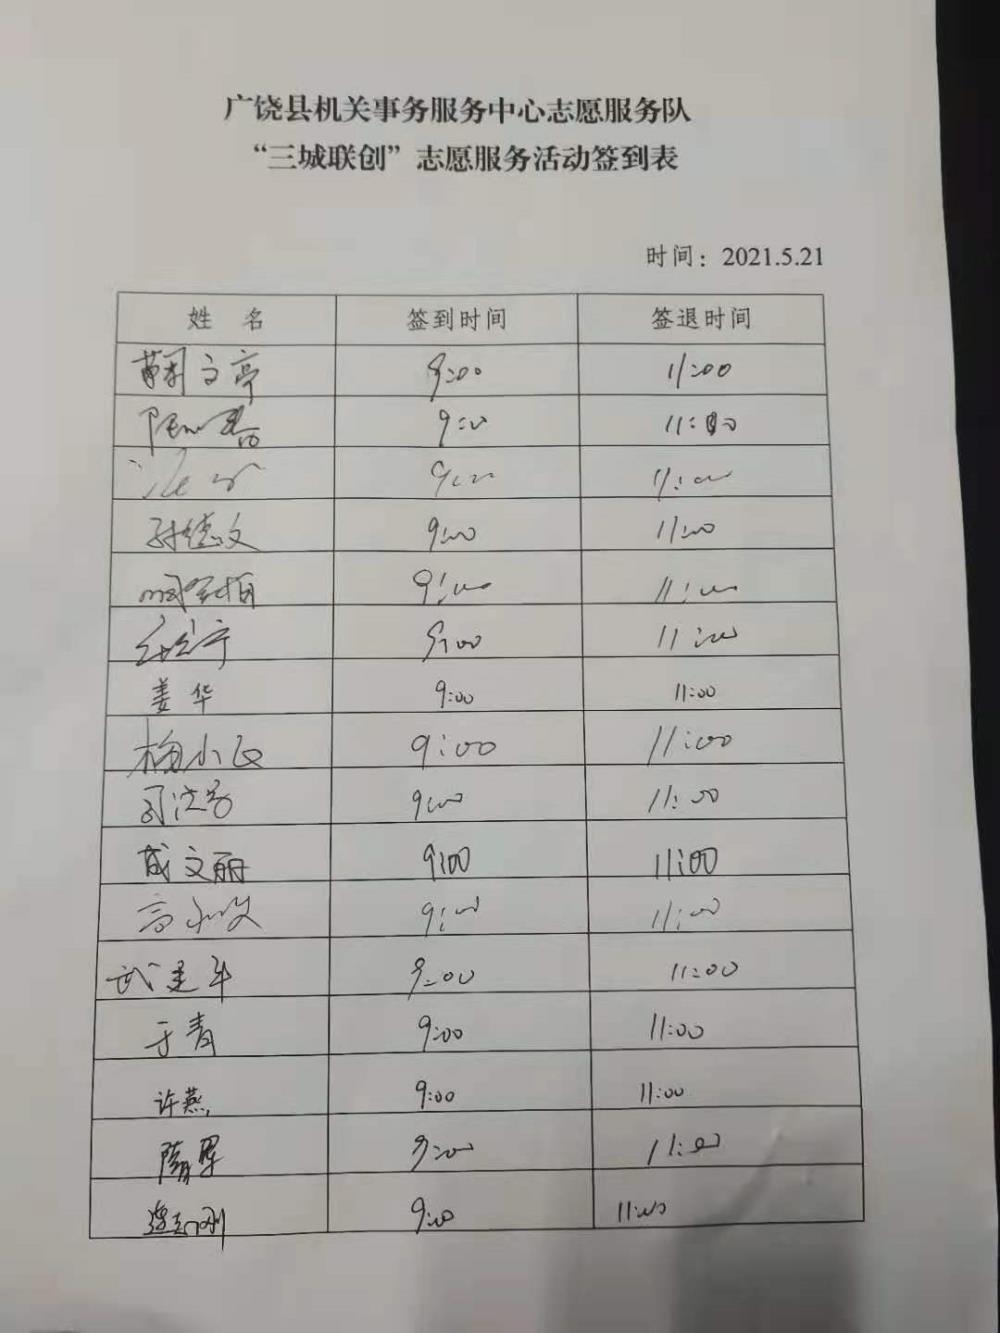 广饶县机关事务服务中心志愿服务队
“三城联创”志愿服务活动签到表
时间：2021.5.21
姓 名 签到时间 签退时间
文亭 9:00 11:00
9:00 11:00
9:00 11:00
孙德文 9:00 11:00
9:00 11:00
9:00 11:00
姜华 9:00 11:00
小 9:00 11:00
9:00 11:00
成文丽 9:00 11:00
高 9:00 11:00
武建军 9:00 11:00
于青 9:00 11:00
许燕 9:00 11:00
隋军 9:00 11:00
刚 9:00 11:00